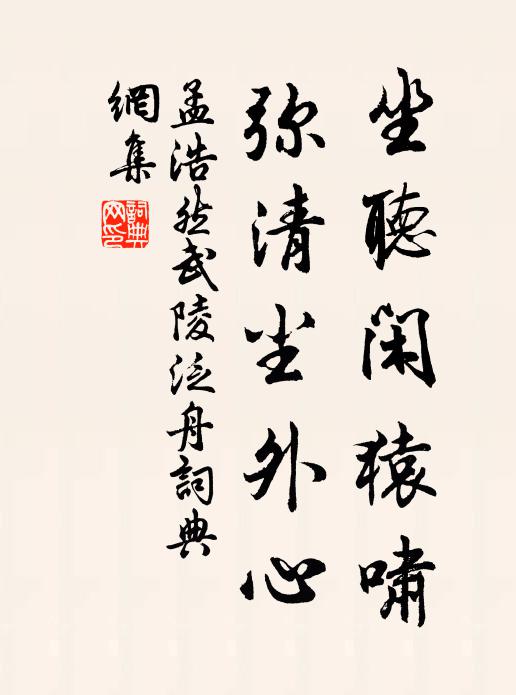 坐聽閑猿嘯
弥清尘外心
孟浩然武陵泛舟詞典
網集
詞典
网印